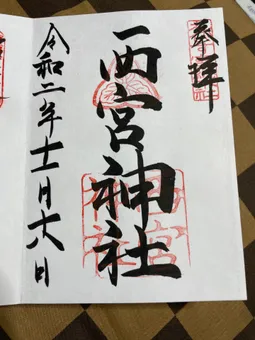 奉拝
西宮神社
令和二年十一月十八日